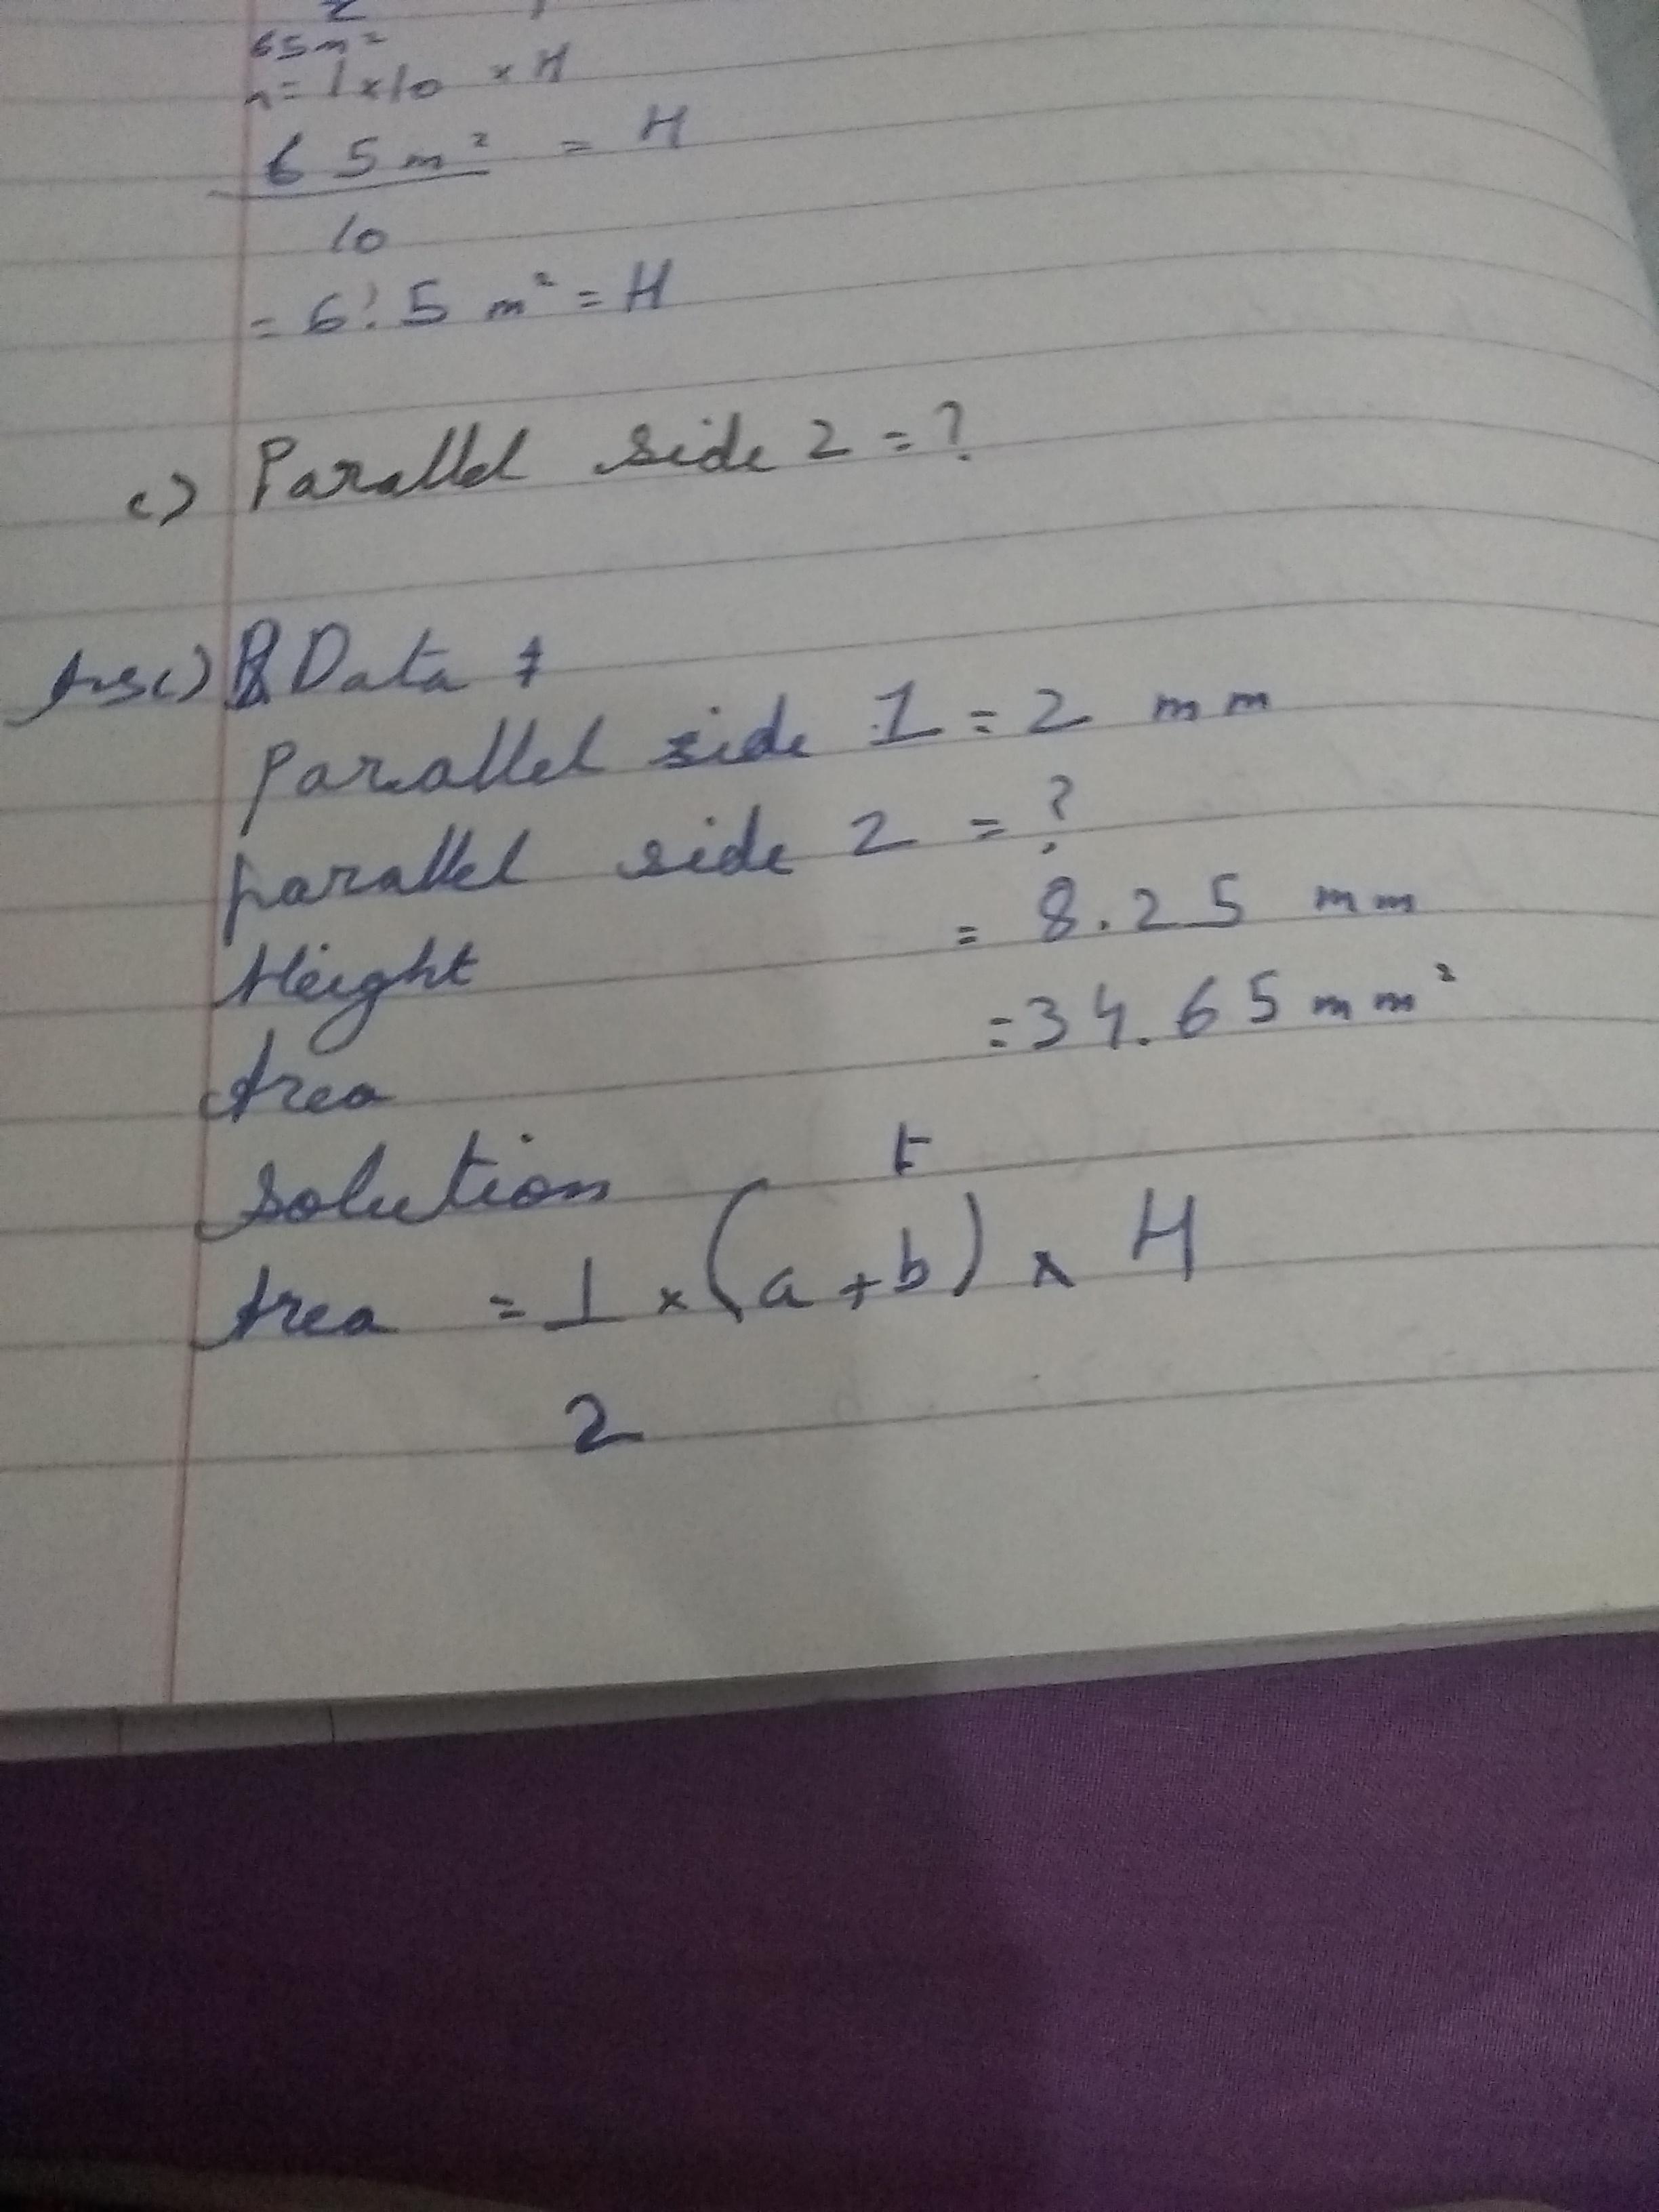 65m²
= 1 x 10 x H
65m² = H
10
= 6.5 m² = H
c) Parallel side 2 = ?
Ans c) Data
Parallel side 1 = 2 mm
parallel side 2 = ?
Height = 8.25 mm
Area = 34.65 mm²
Solution
Area = 1 x (a + b) x H
2